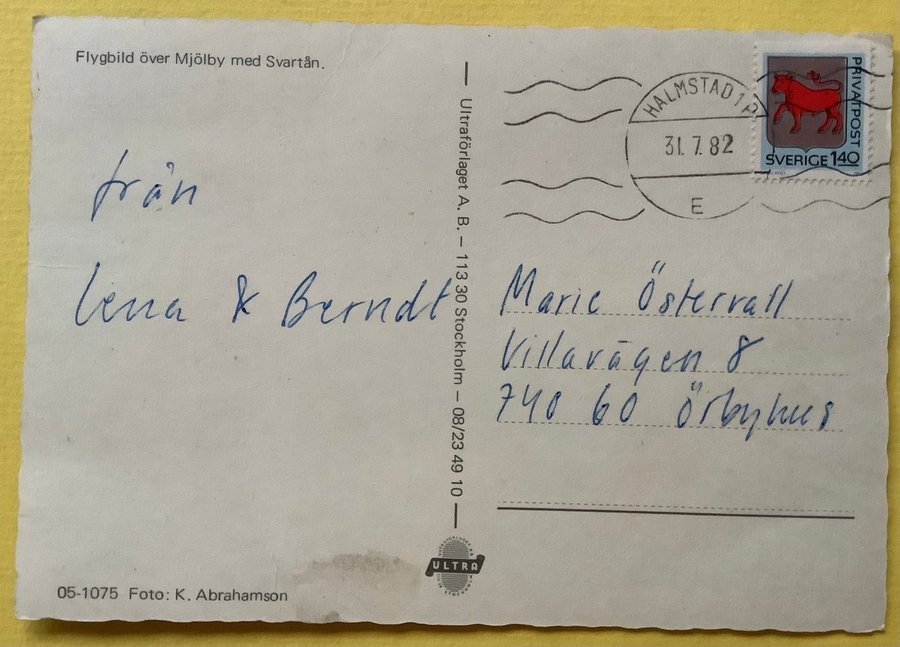 Flygbild över Mjölby med Svartån.
från
Lena & Berndt
05-1075 Foto: K. Abrahamson
Ultraförlaget A. B. – 113 30 Stockholm – 08/23 49 10
ULTRA
HALMSTAD 1
31. 7. 82
E
PRIVATPOST
SVERIGE 140
Marie Östervall
Villavägen 8
740 60 Örbyhus